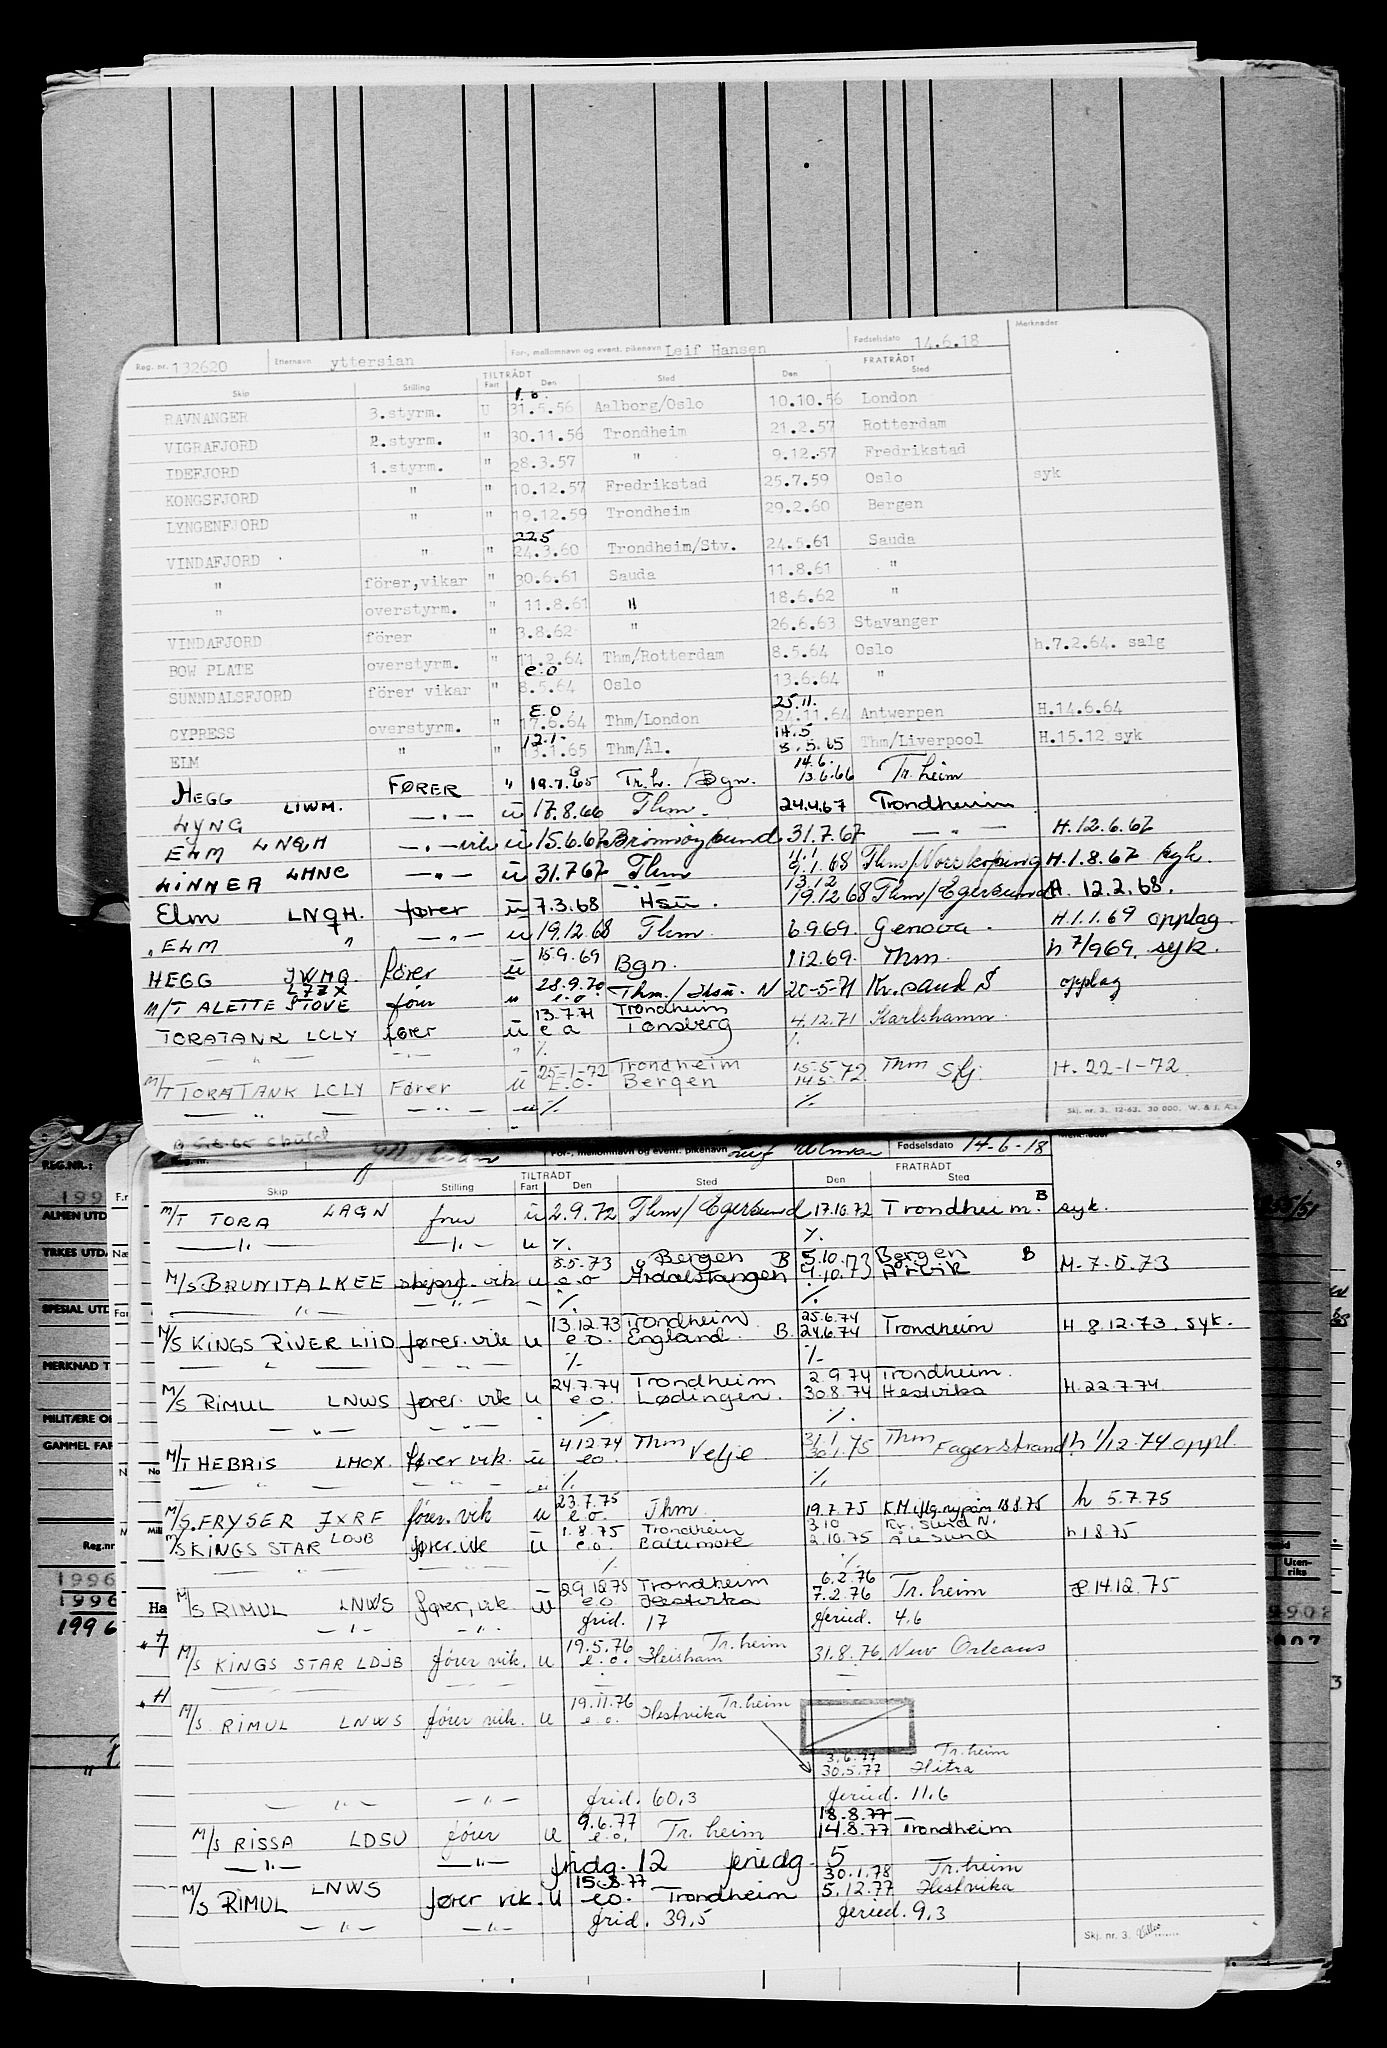 Merknader
Reg. nr. 132620 Etternavn yttersian For-, mellomnavn og event. pikenavn Leif Hansen Fødselsdato 14.6.18
TILTRÅDT FRATRÅDT
Skip Stilling Fart Den Sted Den Sted
1.6.
RAVNANGER 3.styrm. U 31.5.56 Aalborg/Oslo 10.10.56 London
VIGRAFJORD 2.styrm. " 30.11.56 Trondheim 21.2.57 Rotterdam
IDEFJORD 1.styrm. " 28.3.57 " 9.12.57 Fredrikstad
KONGSFJORD " " 10.12.57 Fredrikstad 25.7.59 Oslo syk
LYNGENFJORD " " 19.12.59 Trondheim 29.2.60 Bergen
22.5
VINDAFJORD " " 24.3.60 Trondheim/Stv. 24.5.61 Sauda
" förer,vikar " 30.6.61 Sauda 11.8.61 "
" overstyrm. " 11.8.61 " 18.6.62 "
VINDAFJORD förer " 3.8.62 " 26.6.63 Stavanger
BOW PLATE overstyrm. " 11.2.64 Thm/Rotterdam 8.5.64 Oslo h.7.2.64. salg
e.o
SUNNDALSFJORD förer vikar " 8.5.64 Oslo 13.6.64 "
E.O 25.11.
CYPRESS overstyrm. " 17.6.64 Thm/London 24.11.64 Antwerpen H.14.6.64
12.1. 14.5
ELM " " 3.1.65 Thm/Ål. 8.5.65 Thm/Liverpool H.15.12 syk
14.6.
HEGG FØRER " 19.7.65 Tr.h. /Bgn. 13.6.66 Tr.heim
LYNG LIWM. — " — u 17.8.66 Thm. 24.4.67 Trondheim
ELM LNQH — " — vik u 15.6.67 Brønnøysund 31.7.67 — " — H.12.6.67
LINNEA LHNC — " — u 31.7.67 Thm 9.1.68 Thm/Norrköping H.1.8.67 syk.
13.12
Elm LNQH. fører u 7.3.68 Hsu. 19.12.68 Thm/Egersund H. 12.2.68.
" ELM " — " — u 19.12.68 Thm. 6.9.69. Genova. H.1.1.69 opplag.
HEGG JWMQ fører u 15.9.69 Bgn. 1.12.69. Thm. h 7/9 69. syk.
M/T ALETTE STOVE LJZX fører u 28.9.70 e.o. Thm./Hsu. N 20-5-71 Kr.sand S opplag
TORATANK LCLY fører u 13.7.71 e o Trondheim Tønsberg 4.12.71 Karlshamn.
— " — — " — " ·/. ·/.
M/T TORATANK LCLY Fører u 25-1-72 E.O. Trondheim Bergen 15.5 14.5.72 Thm Sfj. H. 22-1-72.
— " — — " — u ·/. ·/.
Skj. nr. 3. 12-63. 30 000. W. & J. A.
For-, mellomnavn og event. pikenavn Fødselsdato 14-6-18
TILTRÅDT FRATRÅDT
Skip Stilling Fart Den Sted Den Sted
M/T TORA LAGN fører u 2.9.72 Thm/Egersund 17.10.72 Trondheim. B syk.
— " — — " — u ·/. ·/.
M/S BRUNITA LKEE vik u 8.5.73 e.o Bergen B Årdalstangen 5.10.73 4.10.73 Bergen B H-7.5.73
— " — — " — ·/. ·/.
M/S KINGS RIVER LIID fører. vik u 13.12.73 e.o. Trondheim. England. B 25.6.74 24.6.74 Trondheim H 8.12.73. syk.
— " — — " — ·/. ·/.
M/S RIMUL LNWS fører. vik u 24.7.74 e.o. Trondheim Lødingen. 2.9.74 30.8.74 Trondheim. Hestvika H.22.7.74.
— " — — " — ·/. ·/.
M/T HEBRIS LHOX. fører vik. u 4.12.74 eo. Thm Vejle 31.1 30.1.75 Thm Fagerstrand h 1/12.74 oppl.
— " — — " — u ·/. ·/.
M/S. FRYSER JXRF fører. vik u 23.7.75 e.o. Thm. 19.7.75 h 5.7.75
M/S KINGS STAR LDJB fører.vik u 1.8.75 e.o. Trondheim Baltimore 3.10 2.10.75 Kr. Sund N. Ålesund h 1.8.75
— " — — " — ·/. ·/.
M/S RIMUL LNWS fører, vik u 29.12.75 e.o Trondheim Hestvika 6.2.76 7.2.76 Tr.heim H.14.12.75
— " — — " — frid. 17 feried. 4.6
M/S KINGS STAR LDJB fører vik. u 19.5.76 e.o. Tr.heim Heisham 31.8.76. New Orleans
M/S. RIMUL LNWS fører vik. u 19.11.76 e.o. Tr.heim Hestvika
3.6.77 Tr.heim
30.5.77 Hitra
— " — — " — frid. 60,3 feried. 11.6
M/S RISSA LDSU fører u 9.6.77 e.o. Tr.heim 18.8.77 14.8.77 Trondheim
— " — — " — fridg. 12 feriedg. 5
M/S RIMUL LNWS fører vik. u 15.8.77 eo. Trondheim 30.1.78 5.12.77 Tr.heim Hestvika
— " — — " — frid. 39,5 feried. 9.3
Skj. nr. 3.
REG.NR.:
199
ALMEN UTD
YRKES UTD
SPESIAL UTD
MERKNAD T
MILITÆRE O
GAMMEL FAR
Reg.nr
1996
1996
1996
Uten-
riks